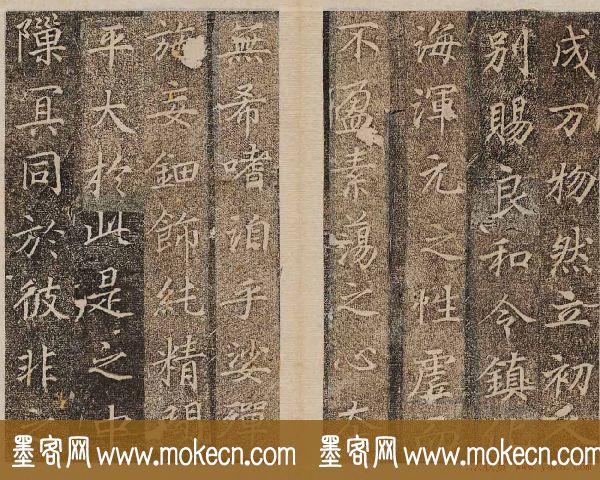 成万物然立初人
別賜良和令鎮
海渾元之性虛而
不盈素蕩之心本
無希嗜洎乎娑殫
施妄鈿飾純精間
平大於此是之中
隟冥同於彼非
墨客网 www.mokecn.com 墨客网 www.mokecn.com